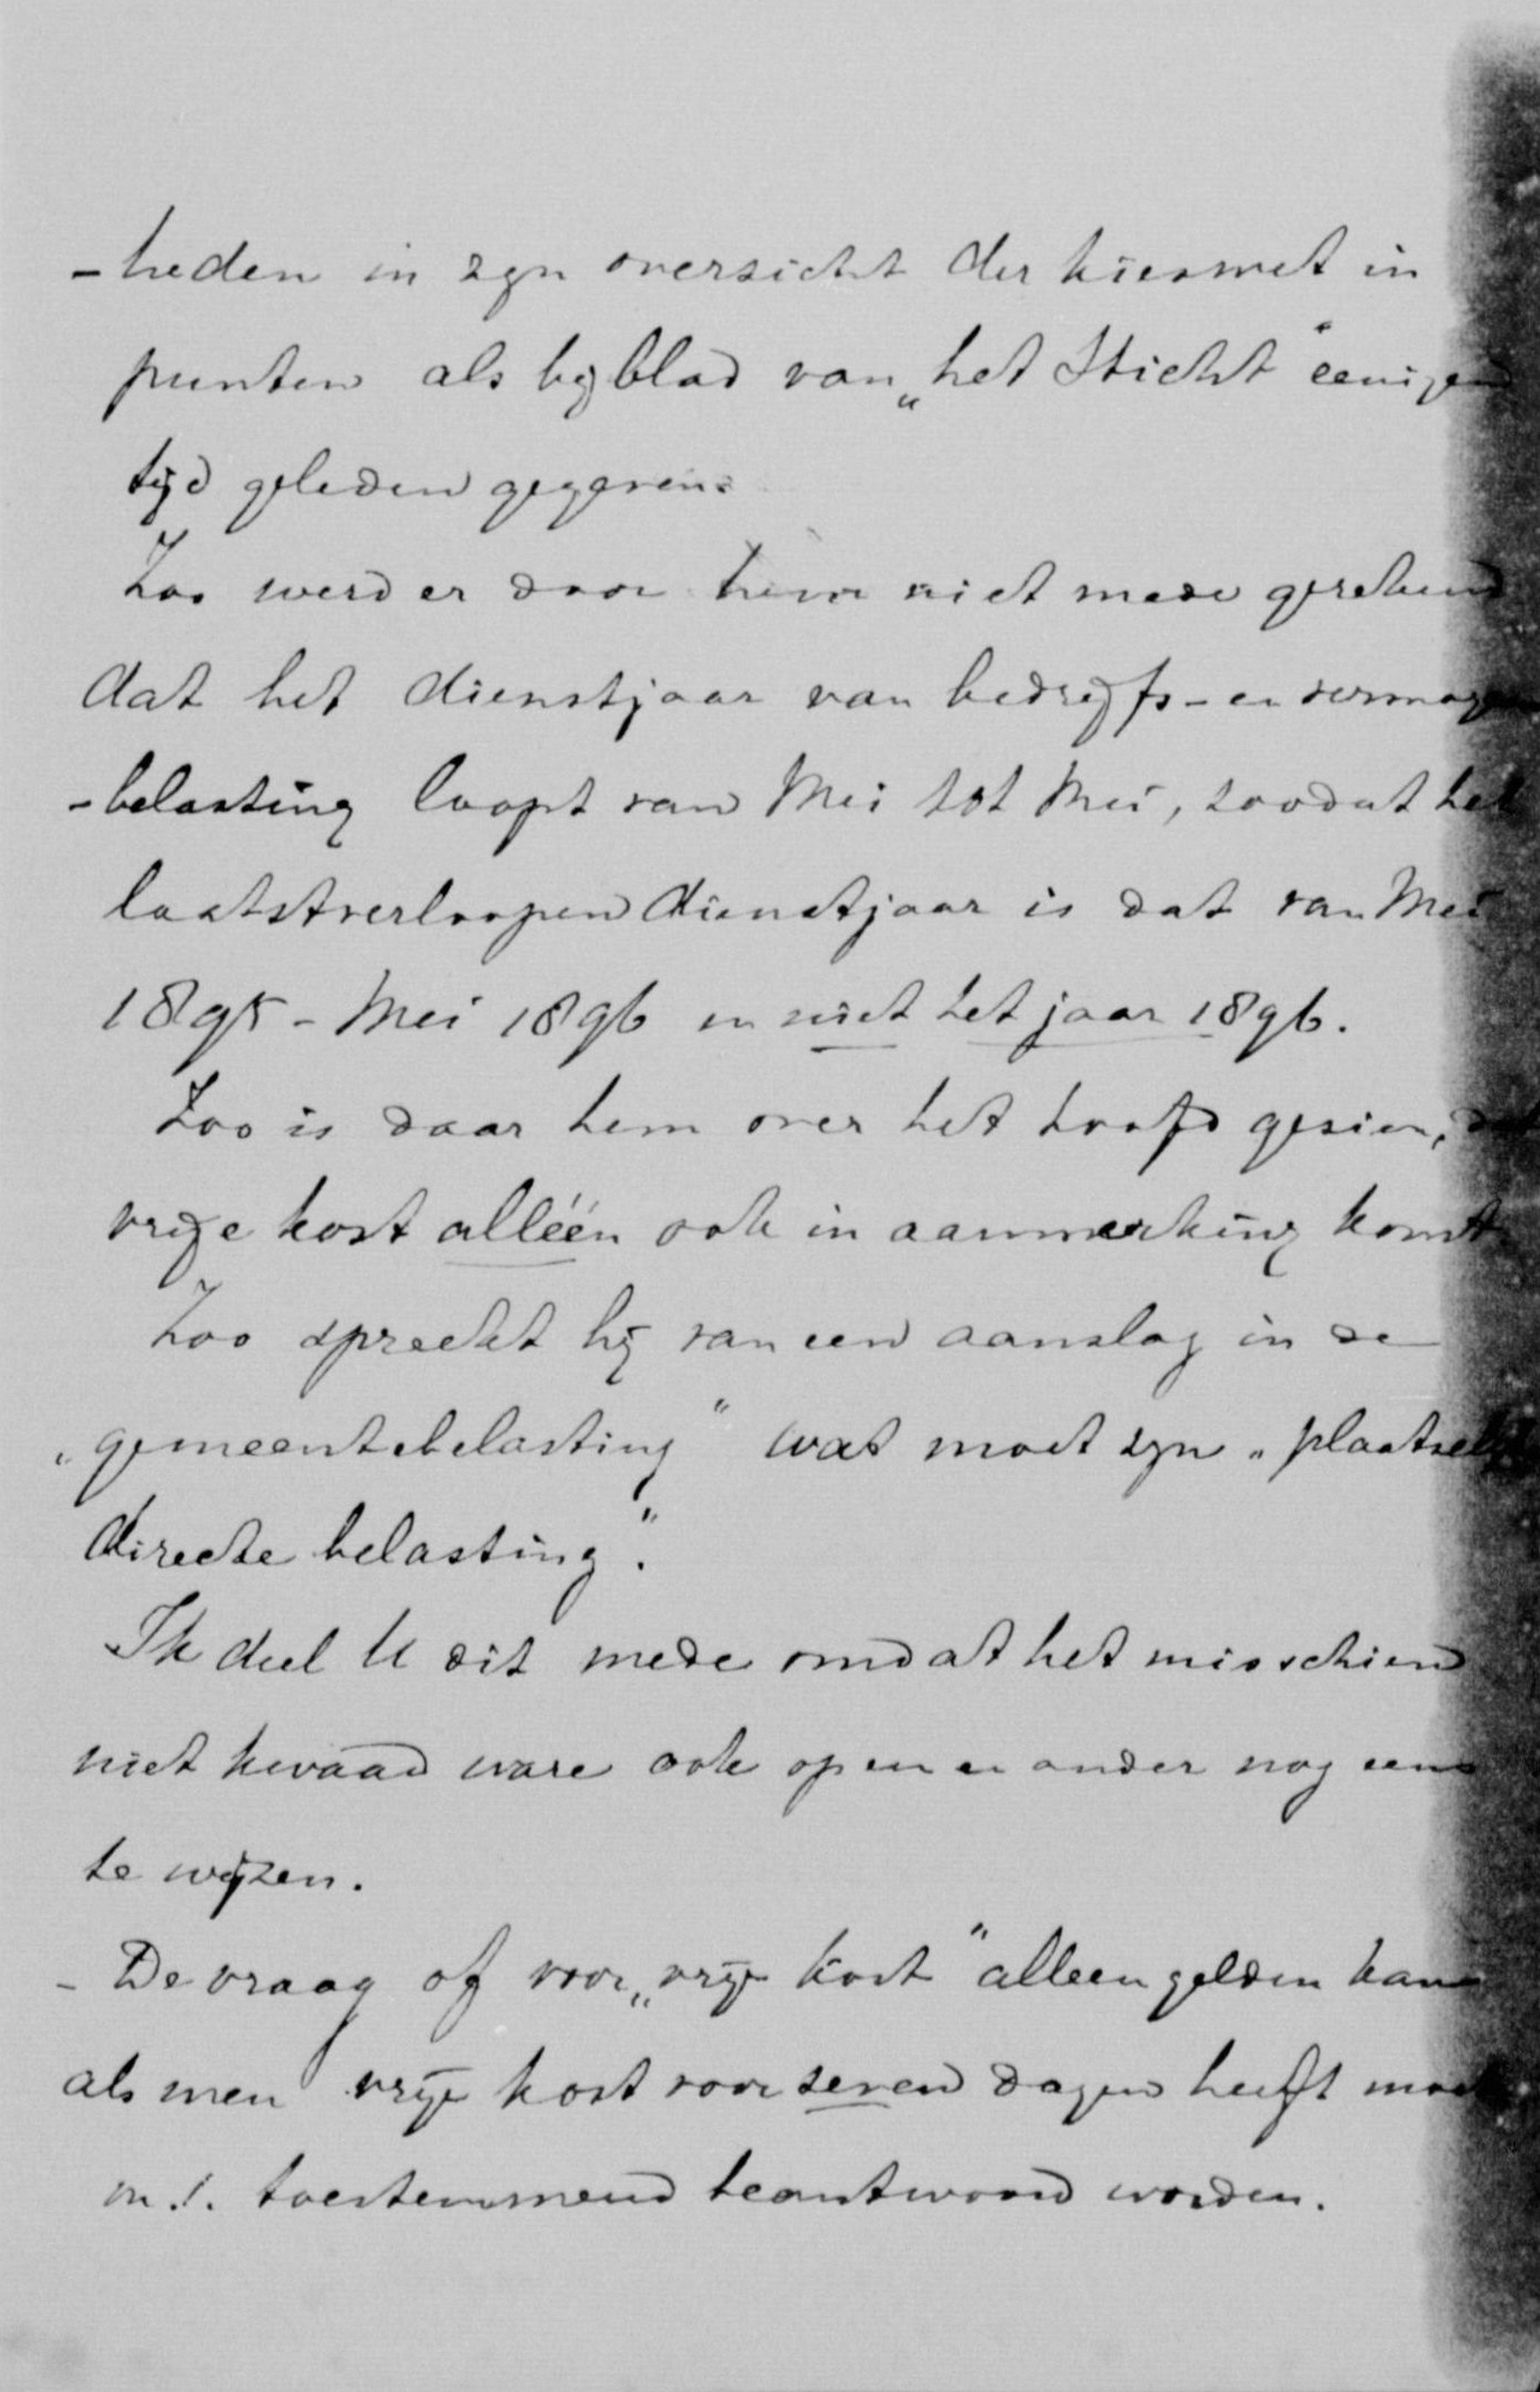 -heden in zyn overzicht der kieswet in
punten als byblad van „het Sticht" eenigen
tyd geleden gegeven.
Zoo werd er door hem niet mede gerekend
dat het dienstjaar van bedryfs- en vermogen
-belasting loopt van Mei tot Mei, zoodat het
laatstverloopen dienstjaar is dat van Mei
1895 - Mei 1896 en niet het jaar 1896.
Zoo is daar hem over het hoofd gezien,
vrije kost alléén ook in aanmerking komt
Zoo spreekt hij van een aanslag in de
„gemeentebelasting" wat moet zyn „plaatsel
directe belasting".
Ik deel U dit mede omdat het misschien
niet kwaad ware ook op een en ander nog eens
te wijzen.
- De vraag of voor „vrije kost" alleen gelden kan
als men vrije kost voor zeven dagen heeft moet
m.i. toestemmend beantwoord worden.